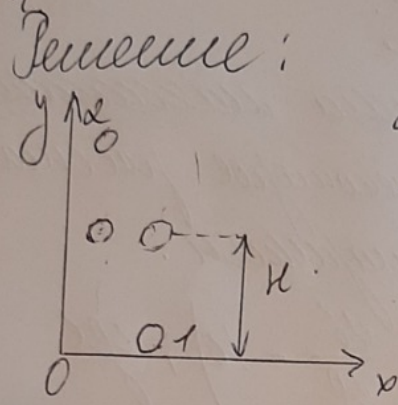 Решение:
y 2
H
1
0 x